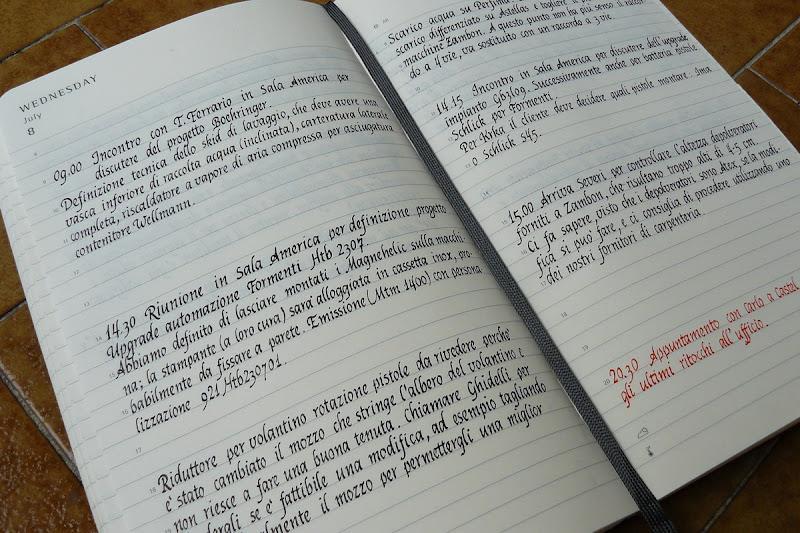 WEDNESDAY
July
8
09.00 Incontro con T. Ferrario in Sala America per
discutere del progetto Boehringer.
Definizione tecnica dello skid di lavaggio, che deve avere una
vasca inferiore di raccolta acqua (inclinata), carteratura laterale
completa, riscaldatore a vapore di aria compressa per asciugatura
contenitore Wellmann.
14.30 Riunione in Sala America per definizione progetto
Upgrade automazione Formenti Htb 2307.
Abbiamo definito di lasciare montati i Magnehelic sulla macchi-
na; la stampante (a loro cura) sarà alloggiata in cassetta inox, pro-
babilmente da fissare a parete. Emissione (Mtm 1400) con persona
lizzazione 921 Htb230701
Riduttore per volantino rotazione pistole da rivedere perché
è stato cambiato il mozzo che stringe l'albero del volantino e
non riesce a fare una buona tenuta. Chiamare Ghidelli per
se è fattibile una modifica, ad esempio tagliando
il mozzo per permettergli una miglior
Scarico acqua su Perfima
scarico differenziato su Astellas e togliere
macchine Zambon. A questo punto non ha più senso il raccor
do a 4 vie, va sostituito con un raccordo a 3 vie.
14.15 Incontro in Sala America per discutere dell'upgrade
impianto Gs/log. Successivamente anche per batteria pistole
Schlick per Formenti
Per Krka il cliente deve decidere quali pistole montare: Ima
o Schlick S45.
15.00 Arriva Soveri per controllare l'altezza depolveratori
forniti a Zambon, che risultano troppo alti di 4-5 cm.
Ci fa sapere, visto che i depolveratori sono Atex, se la modi-
fica si può fare, e ci consiglia di procedere utilizzando uno
dei nostri fornitori di carpenteria.
20.30 Appuntamento con Carlo a Castel
gli ultimi ritocchi all'ufficio.